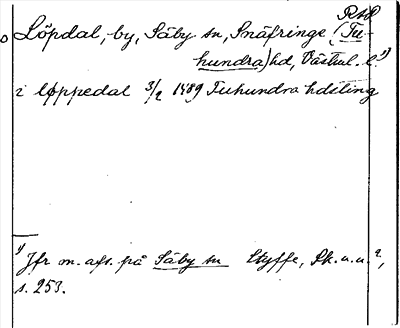 RAP
Löpdal, by, Säby sn, Snäfringe (Tu-
hundra) hd, Västml. l. 1)
i løppedal 3/2 1489 Tuhundra hdsting
1) Jfr m. avs. på Säby sn Styffe, Sk. u. u. 2,
s. 253.